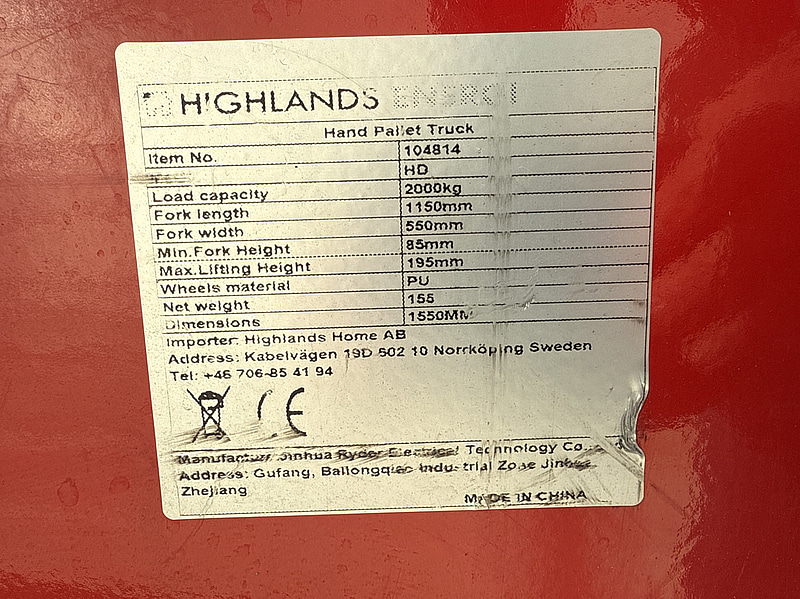 HIGHLANDS ENERGY
Hand Pallet Truck
Item No. 104814
HD
Load capacity 2000kg
Fork length 1150mm
Fork width 550mm
Min.Fork Height 85mm
Max.Lifting Height 195mm
Wheels material PU
Net weight 155
Dimensions 1550MM
Importer: Highlands Home AB
Address: Kabelvägen 19D 602 10 Norrköping Sweden
Tel: +46 706-85 41 94
CE
Manufactur Jinhua Ryder Electrical Technology Co.
Address: Gufang, Bailongqiao Industrial Zone Jinhua
Zhejiang
MADE IN CHINA